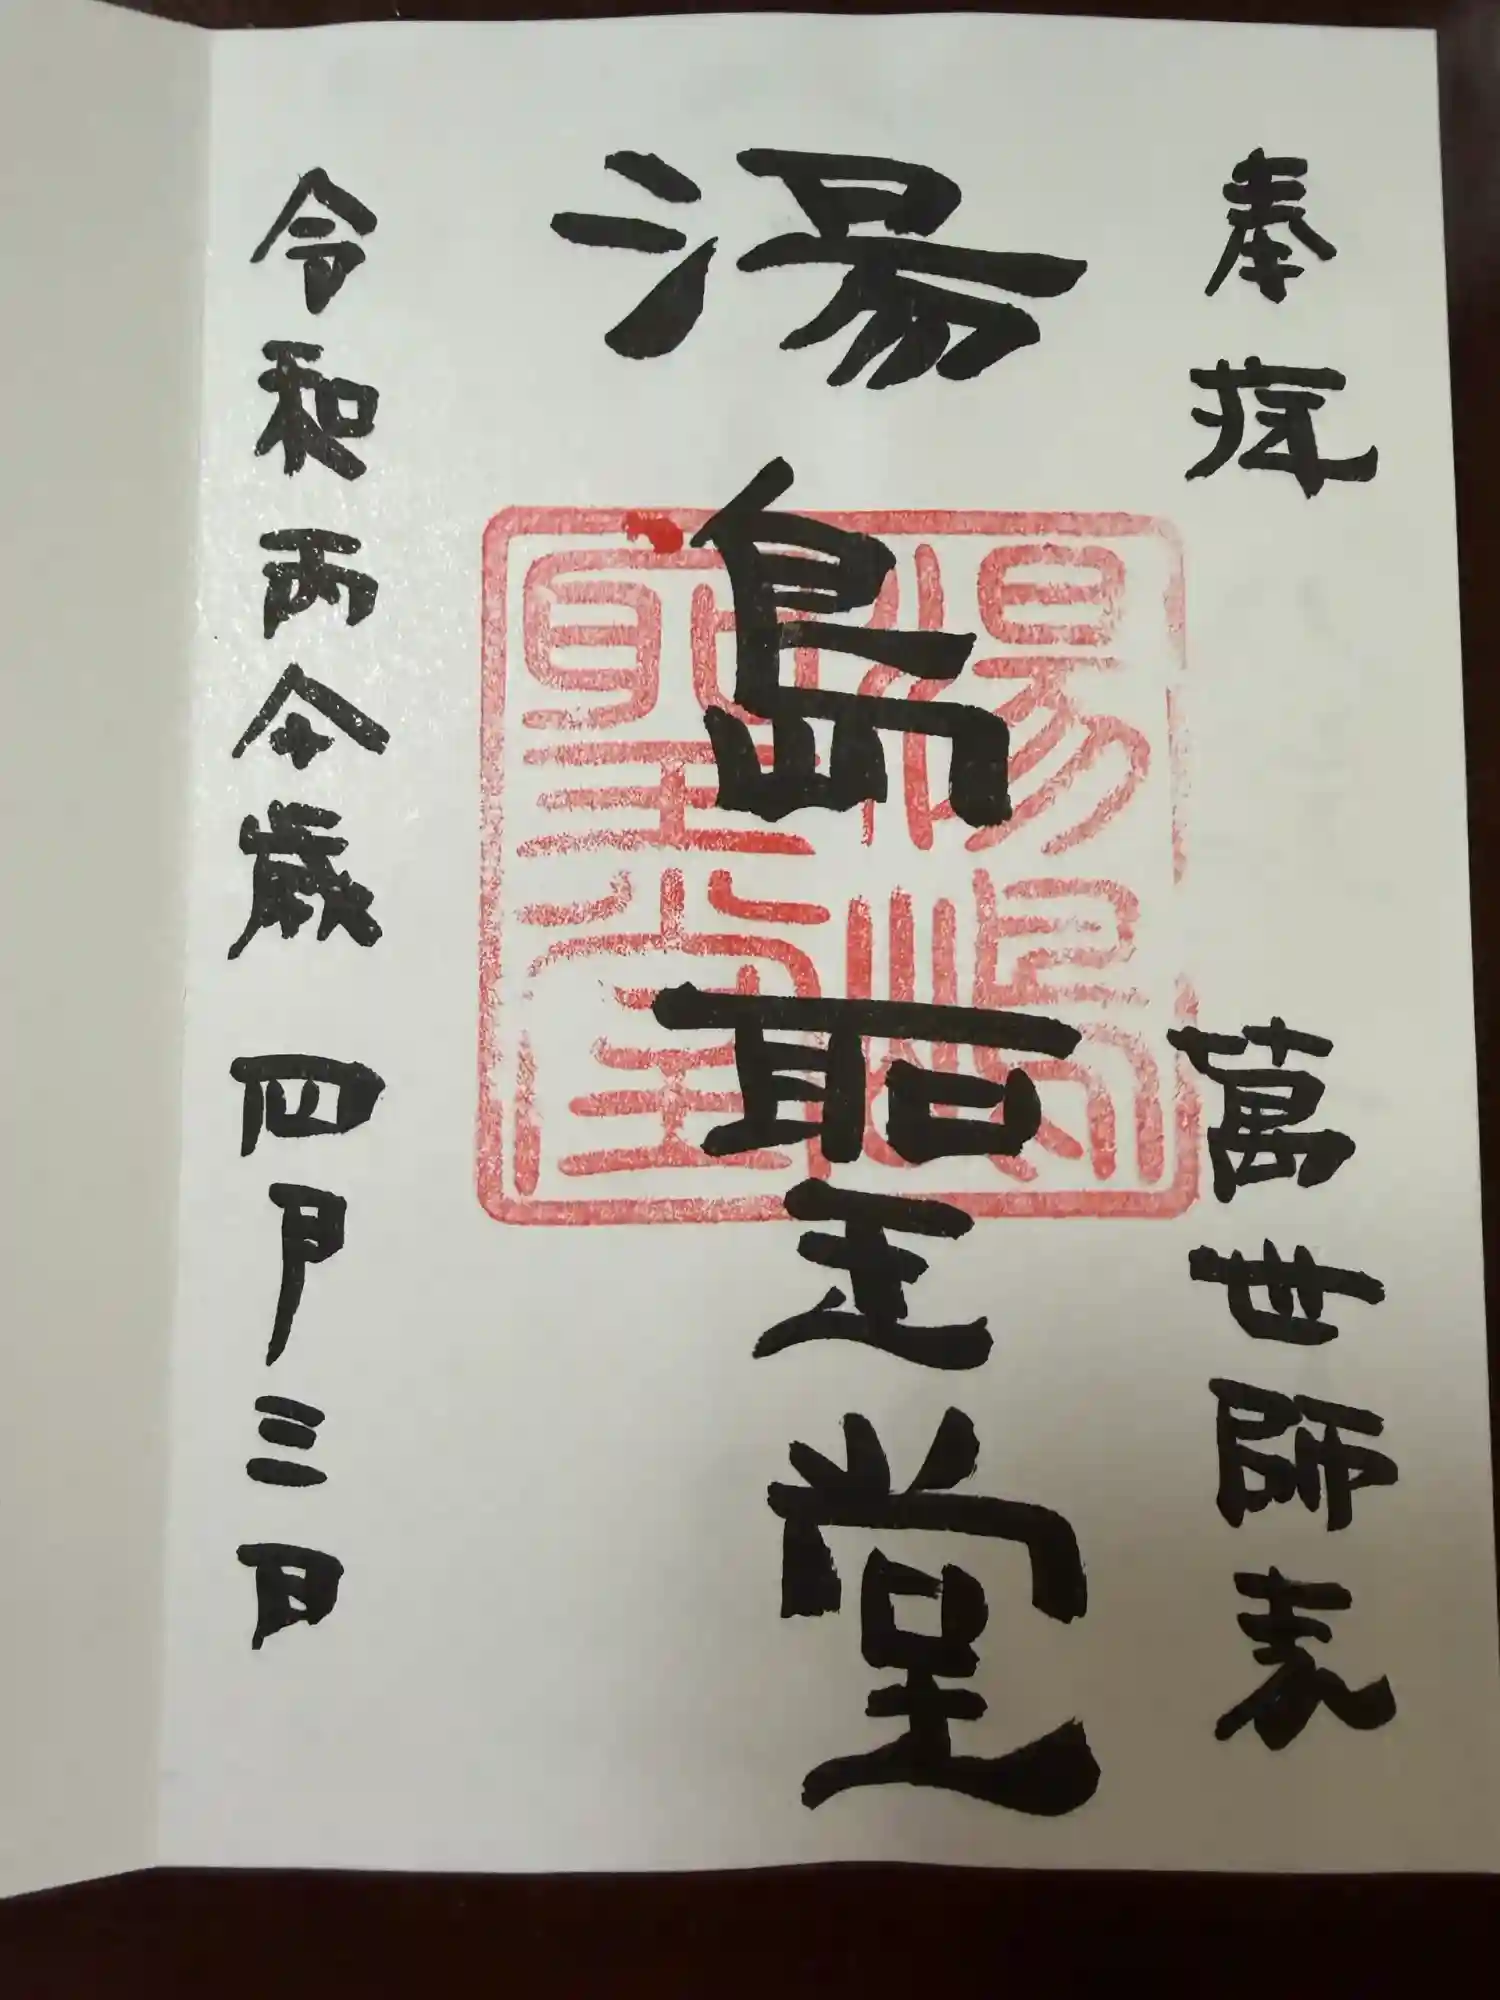 奉拝 萬世師表
湯島聖堂
令和丙午歳 四月三日
湯嶋
聖堂